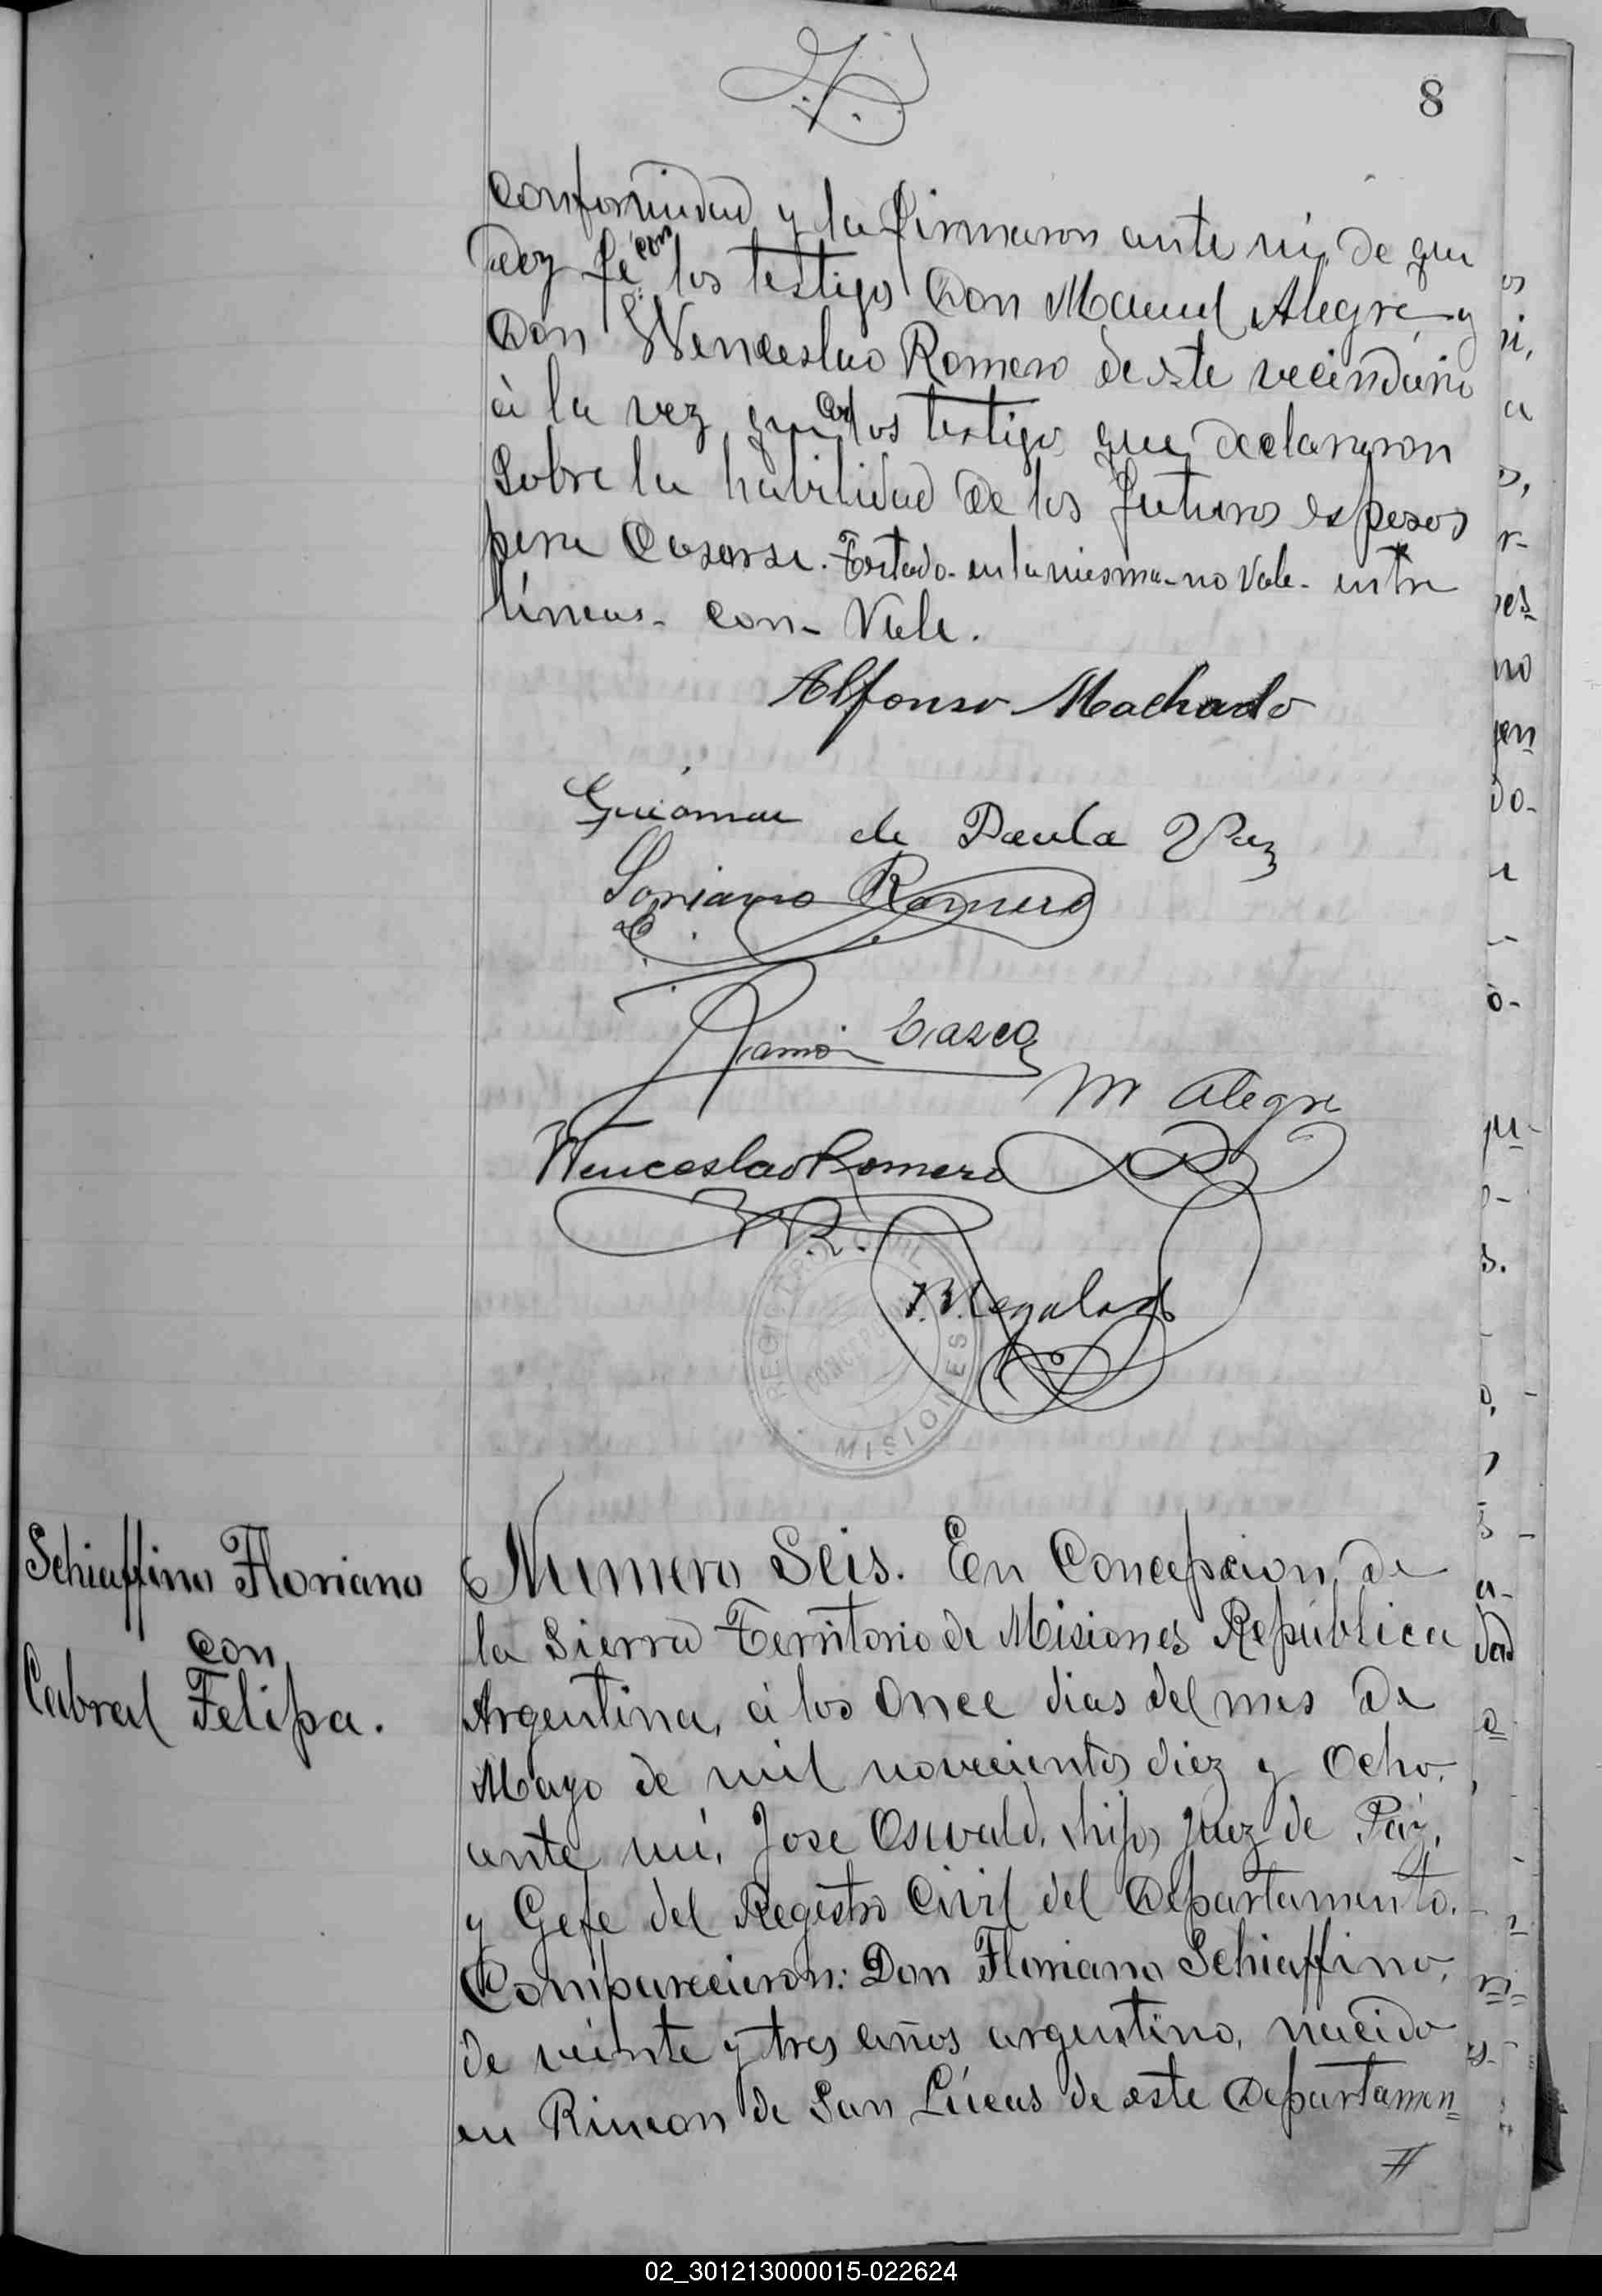 8
conformidad y la firmaron ante mi, de que
doy fé con los testigos Don Manuel Alegre, y
Don Wenceslao Romero de este vecindario
à la vez que con los testigos que declararon
sobre la habilidad de los futuros esposos
para Casarse. Testado- en la misma- no Vale- entre
líneas- con- Vale.
Alfonso Machado
Guiomar de Paula Vaz
Soriano Romero
Ramón
M Alegre
Wenceslao Romero
W R.
REGISTRO CIVIL
CONCEPCION
MISIONES
Schiaffino Floriano
con
Cabral Felipa.
Numero Seis. En Concepcion, de
la Sierra Territorio de Misiones República
Argentina, á los Once dias del mes de
Mayo de mil novecientos diez y Ocho.
ante mi, Jose Oswald, hijo, Juez de Paz,
y Gefe del Registro Civil del Departamento.
Comparecieron: Don Floriano Schiaffino,
de veinte y tres años argentino, nacido
en Rincon de San Lúcas de este Departamen=
//
02_301213000015-022624